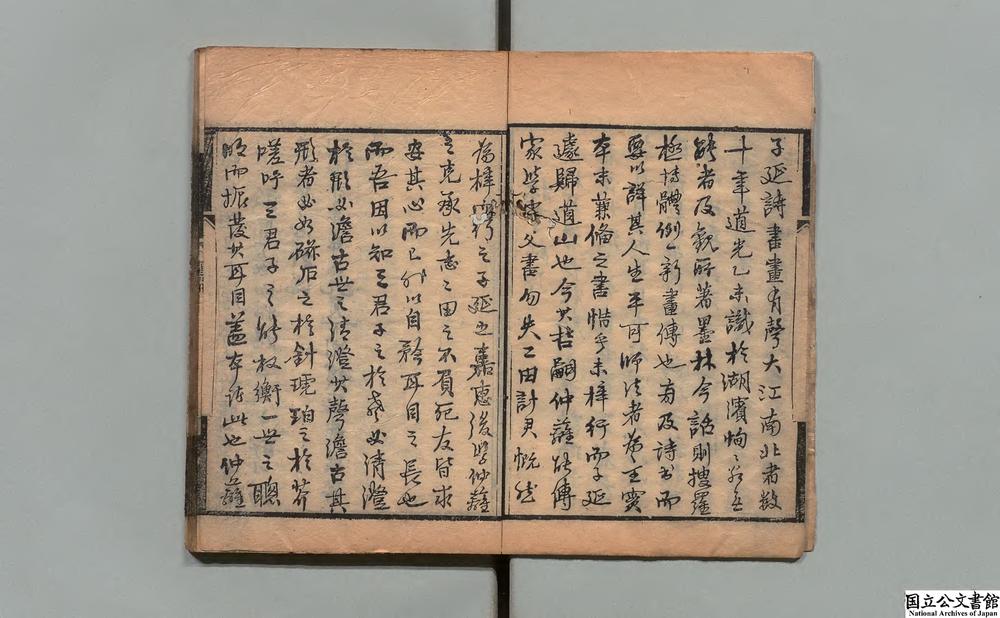 子延詩書畫有聲大江南北者數
十年道光乙未識於湖濱恂々若無
能者及觀所著墨林今話則搜羅
極博體例一新畫傳也旁及詩書而
要以詳其人生平可師法者為主實
本末兼備之書惜乎未梓行而子延
遽歸道山也今其喆嗣仲蘺能傳
家學讀父書勿失二田計君慨然
為梓行之子延之嘉惠後學仲蘺
之克承先志二田之不負死友皆求
安其心而已非以自矜耳目之長也
而吾因以知三君子之於世清澄
於形必澹古世之清澄其聲澹古其
形者必如磁石之於針琥珀之於芥
嗟呼三君子之能權衡一世之聰
明而振發其耳目蓋在此也仲蘺
国立公文書館
National Archives of Japan